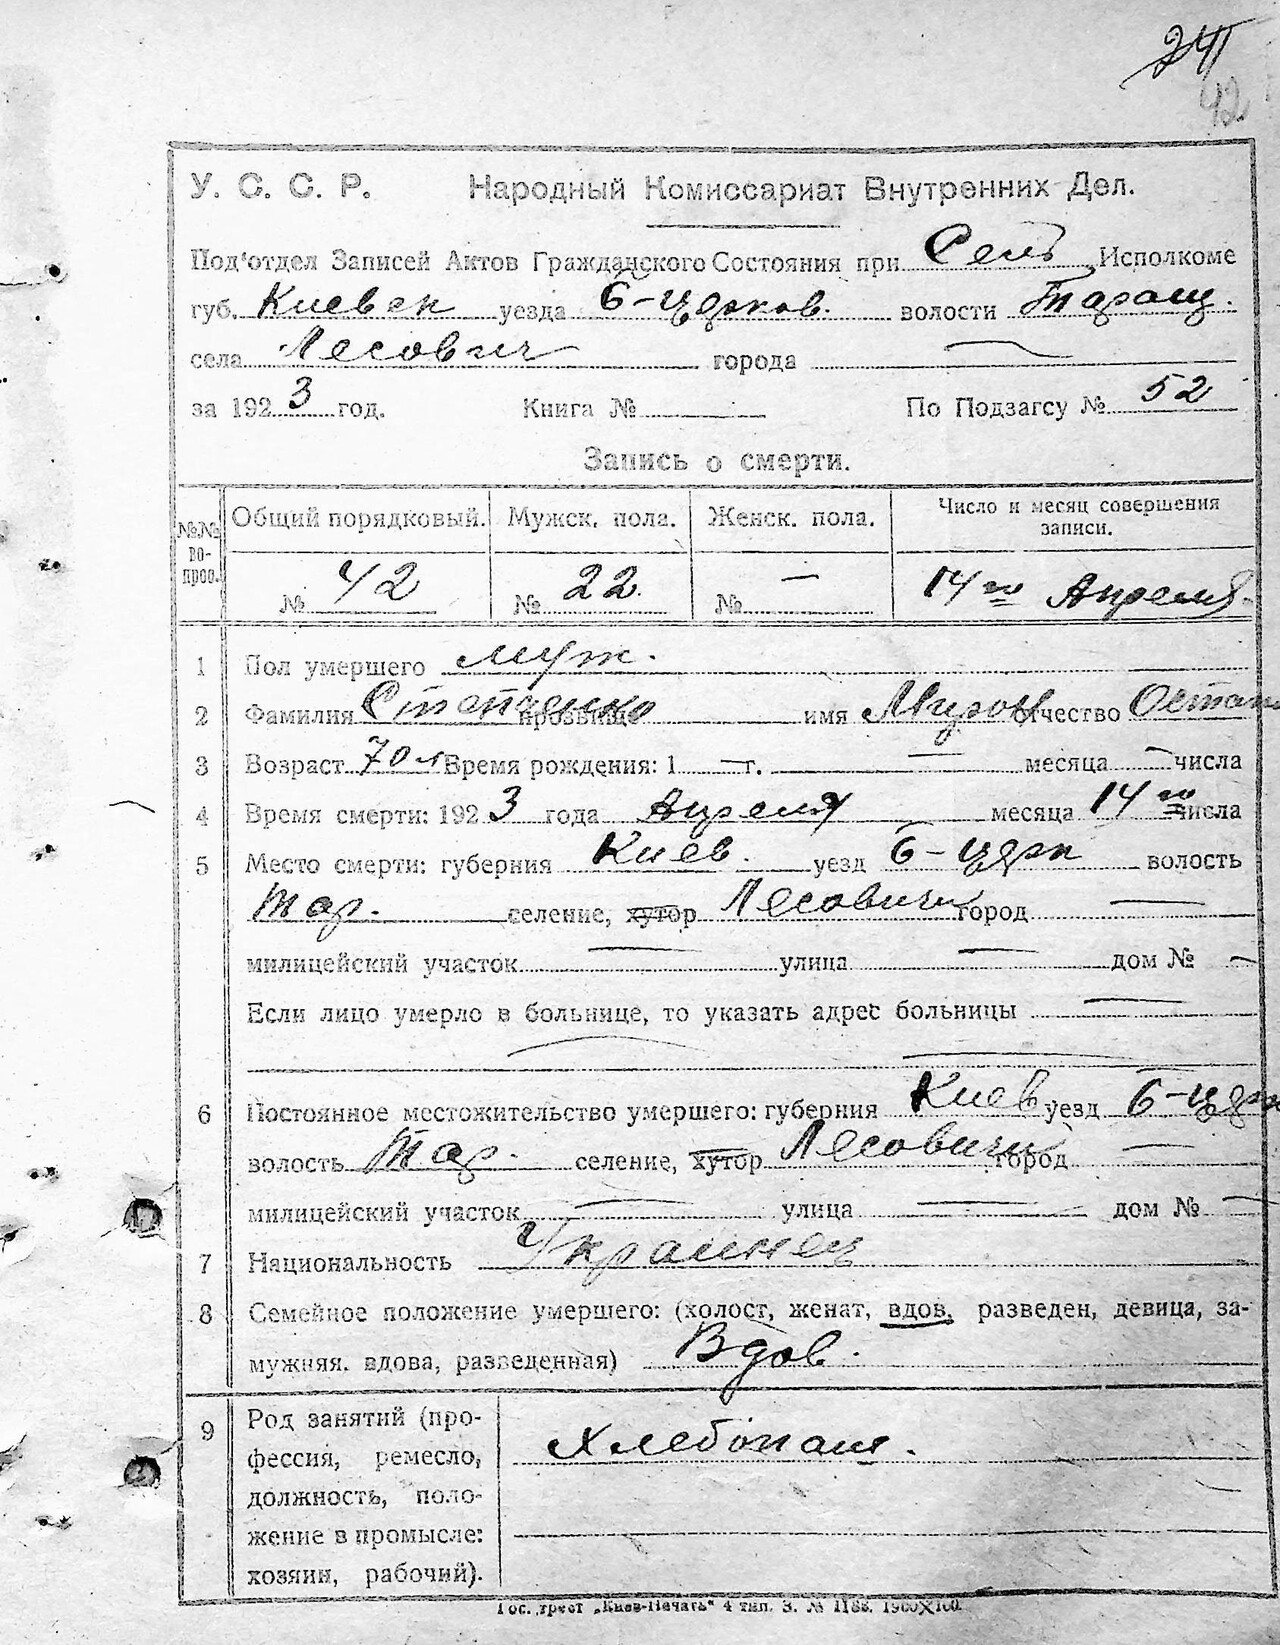 42
У. С. С. Р. Народный Комиссариат Внутренних Дел.
Под'отдел Записей Актов Гражданского Состояния при Сель Исполкоме
губ. Киевск уезда Б-Церков. волости Таращ.
села Лесович города —
за 1923 год. Книга № По Подзагсу № 52
Запись о смерти.
№№ вопрос. Общий порядковый. Мужск. пола. Женск. пола. Число и месяц совершения записи.
№ 42 № 22 № — 14го Апреля
1 Пол умершего муж.
2 Фамилия прозвище имя Мирон отчество Остап
3 Возраст 70 л Время рождения: 1 — г. — месяца — числа
4 Время смерти: 1923 года Апреля месяца 14го числа
5 Место смерти: губерния Киев. уезд Б-Церк волость
Тар. селение, хутор Лесовичи город —
милицейский участок — улица — дом № —
Если лицо умерло в больнице, то указать адрес больницы —
6 Постоянное местожительство умершего: губерния Киев уезд Б-Церк
волость Тар. селение, хутор Лесовичи город —
милицейский участок — улица — дом № —
7 Национальность Украинец
8 Семейное положение умершего: (холост, женат, вдов, разведен, девица, за-
мужняя. вдова, разведенная) Вдов.
9 Род занятий (про-
фессия, ремесло, Хлебопаш.
должность, поло-
жение в промысле:
хозяин, рабочий).
Гос. трест „Киев-Печать" 4 тип. З. №